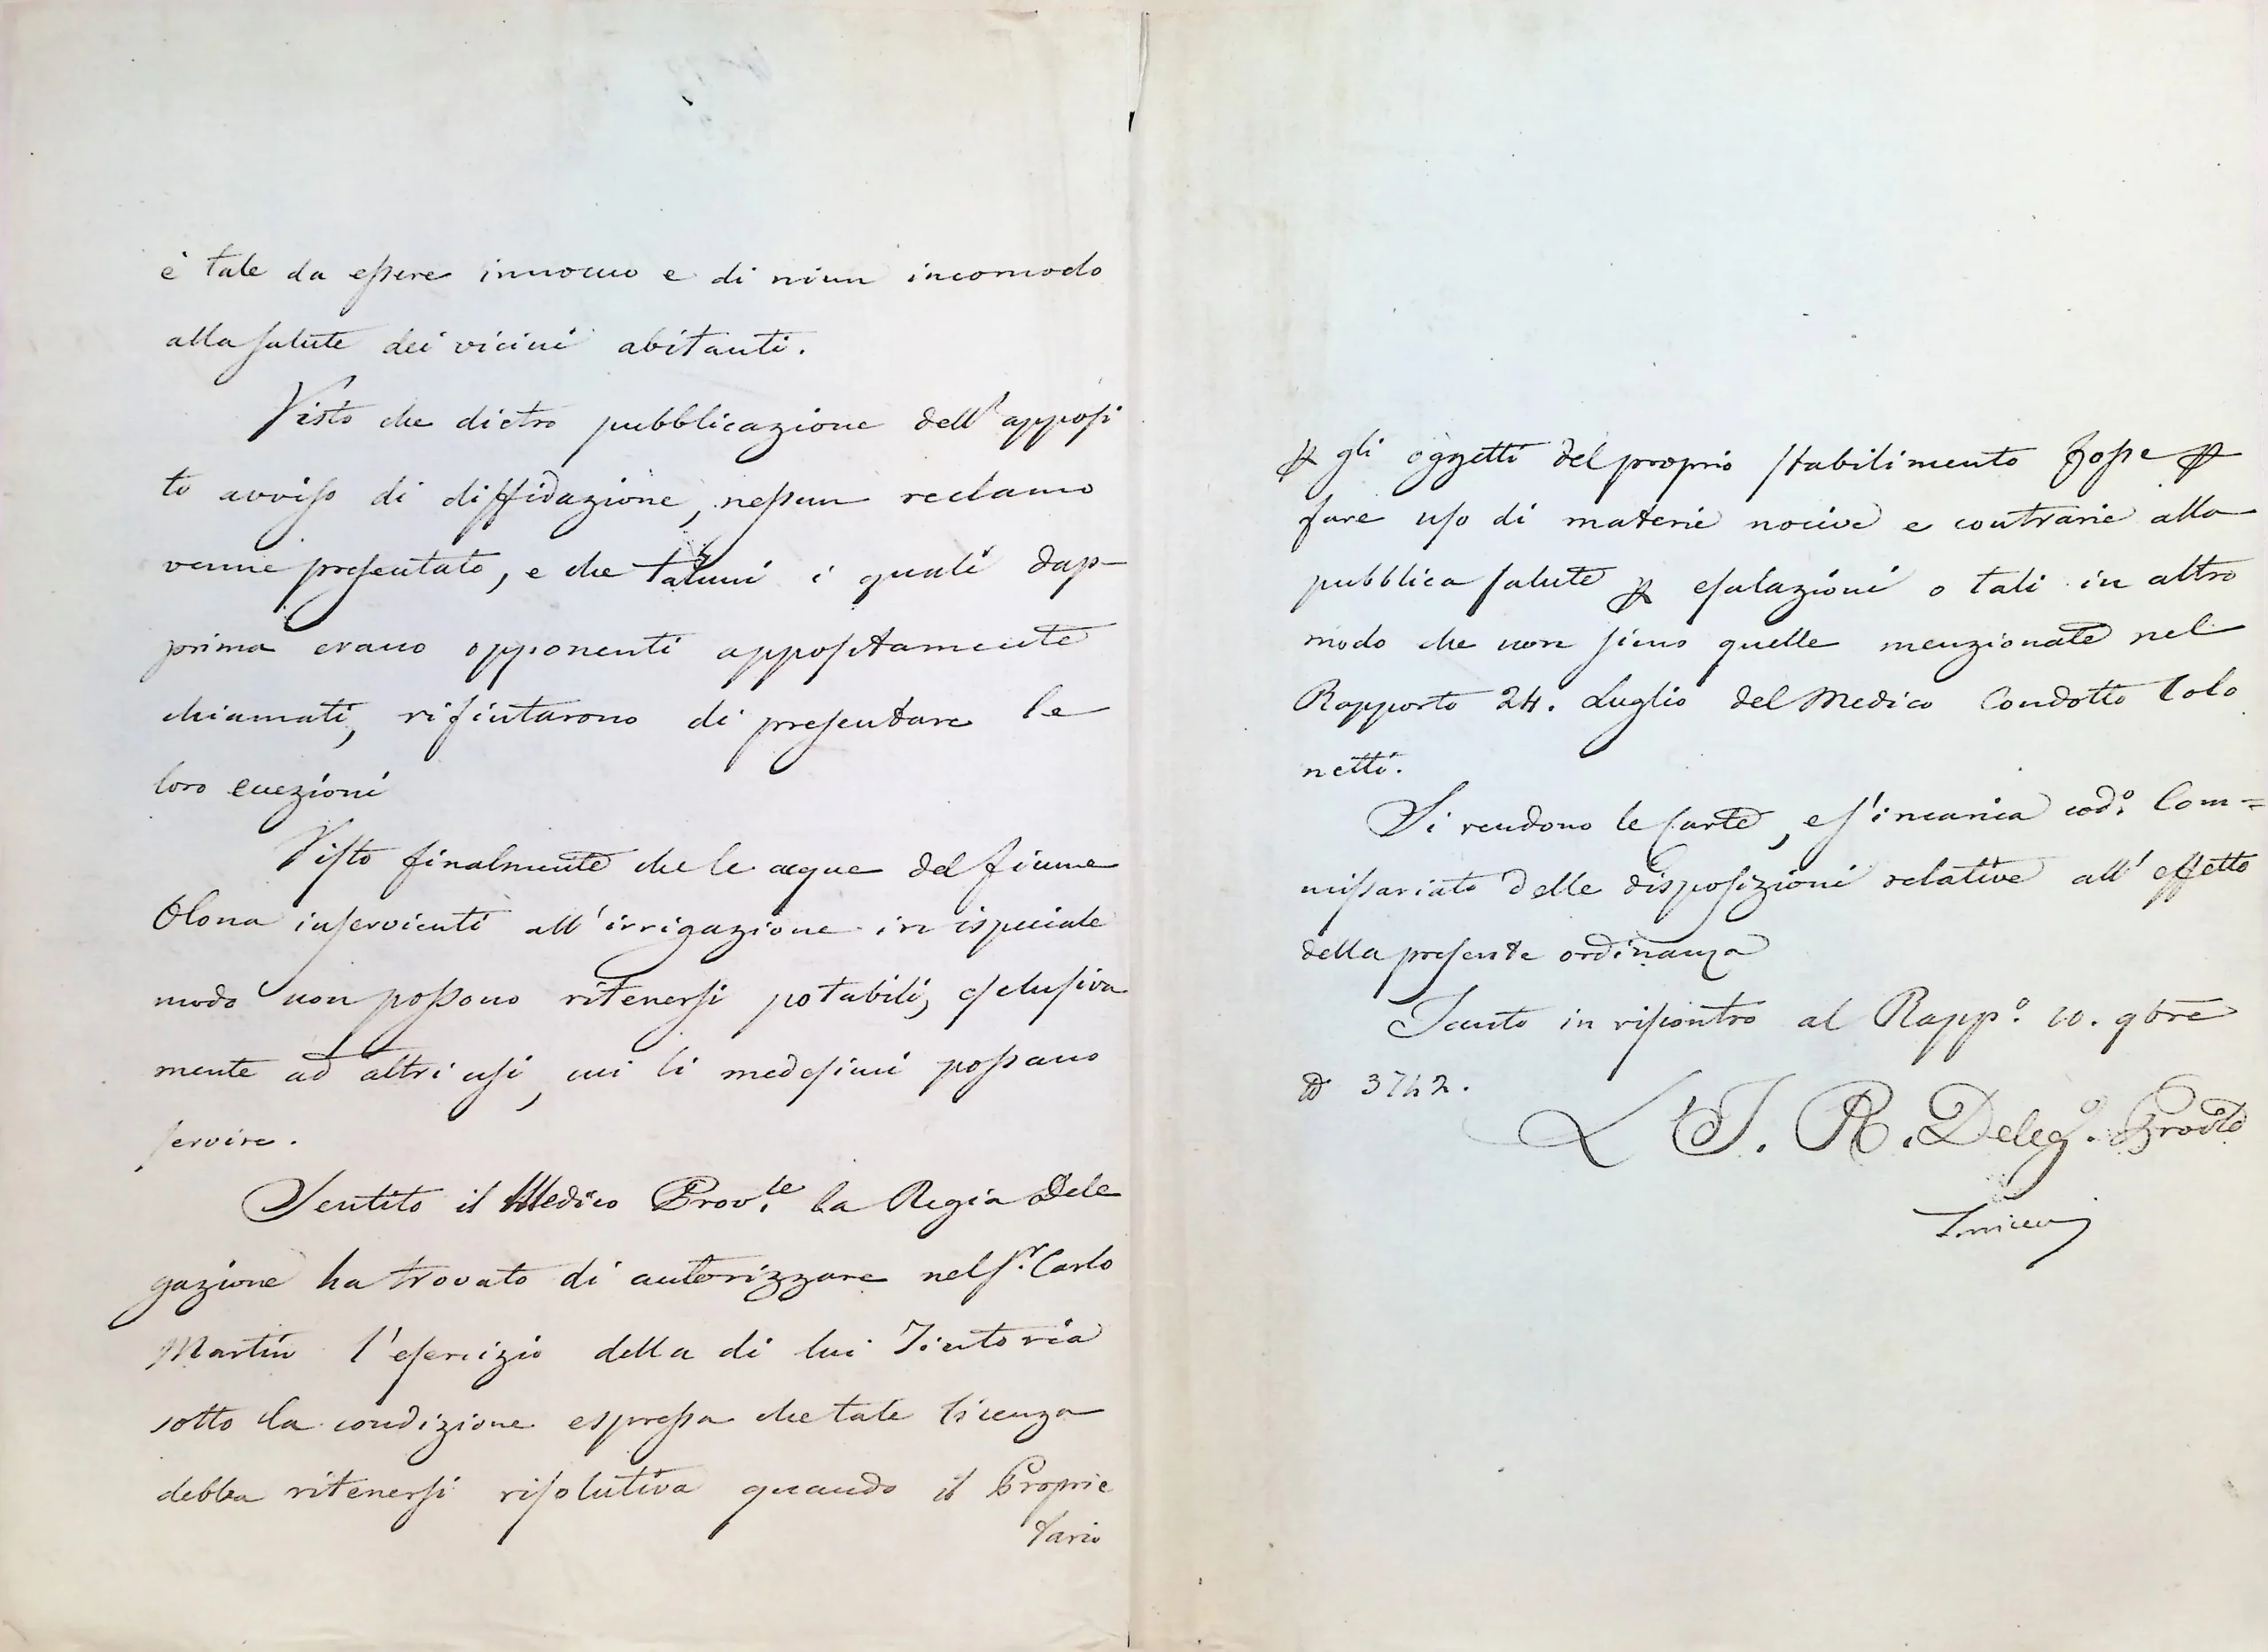 è tale da essere innocuo e di niun incomodo
alla salute dei vicini abitanti.
Visto che dietro pubblicazione dell'apposi
to avviso di diffidazione, nessun reclamo
venne presentato, e che taluni i quali dap-
prima erano opponenti appositamente
chiamati, rifiutarono di presentare le
loro eccezioni
Visto finalmente che le acque del fiume
Olona inservienti all'irrigazione in ispeciale
modo non possono ritenersi potabili, esclusiva
mente ad altri usi, cui li medesimi possano
servire.
Sentito il Medico Prov.le la Regia Dele
gazione ha trovato di autorizzare nel Sr. Carlo
Martin l'esercizio della di lui Tintoria
sotto la condizione espressa che tale licenza
debba ritenersi risolutiva quando il Proprie
tario
gli oggetti del proprio stabilimento fosse p
fare uso di materie nocive e contrarie alla
pubblica salute p esalazioni o tali in altro
modo che non sieno quelle menzionate nel
Rapporto 24. Luglio del Medico Condotto Colo
netti.
Si rendono le Carte, e s'incarica cod.o Com=
missariato delle disposizioni relative all'effetto
della presente ordinanza
Tanto in riscontro al Rapp.o 10. 9bre
3742.
L'I. R. Deleg.o Prov.le